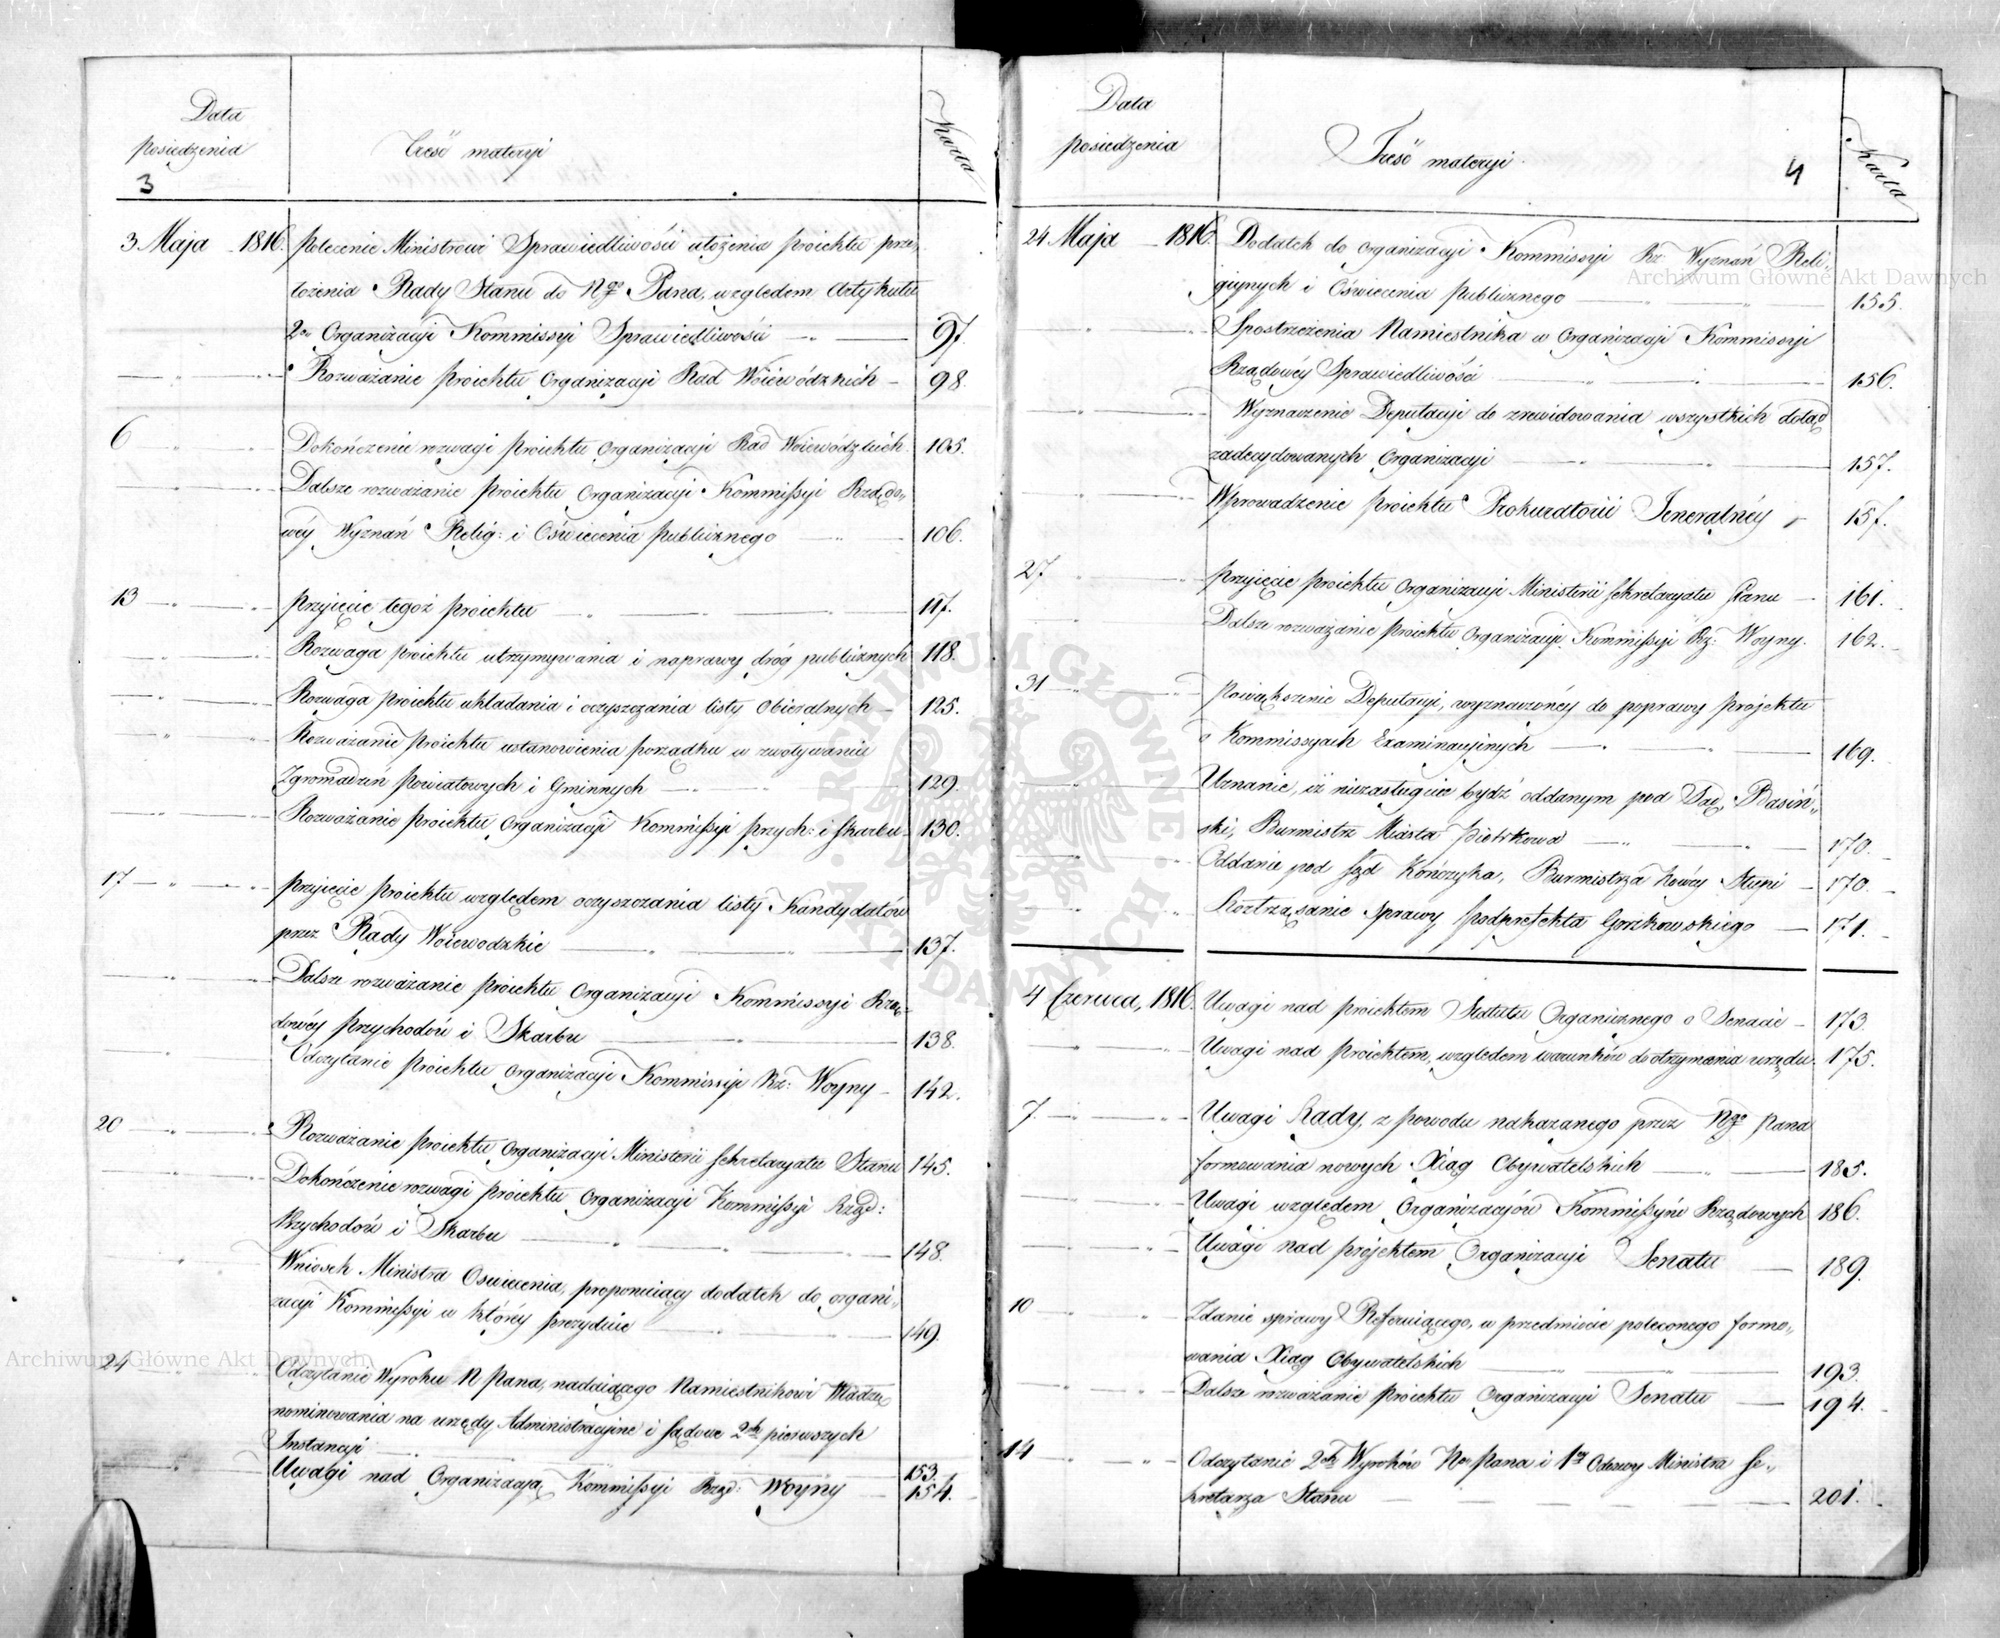 Data
posiedzenia
Treść materyi
Karta
3
3. Maja 1816. Polecenie Ministrowi Sprawiedliwości ułożenia proiektu prze„
łożenia Rady Stanu do Ngo Pana, względem Artykułu
2o Organizacyi Kommissyi Sprawiedliwości 97.
Rozważanie proiektu Organizacyi Rad Woiewódzkich 98.
6 Dokończenie rozwagi proiektu Organizacyi Rad Woiewódzkich. 105.
Dalsze rozważanie proiektu Organizacyi Kommissyi Rządo„
wéy Wyznań Relig: i Oświecenia publicznego 106.
13 Przyięcie tegoż proiektu 117.
Rozwaga proiektu utrzymywania i naprawy dróg publicznych 118.
Rozwaga proiektu układania i oczyszczania listy Obieralnych 125.
Rozważanie proiektu ustanowienia porządku w zwoływaniu
Zgromadzeń Powiatowych i Gminnych 129.
Rozważanie proiektu Organizacyi Kommissyi Przych: i Skarbu 130.
17 Przyięcie proiektu względem oczyszczania listy Kandydatów
przez Rady Woiewodzkie 137.
Dalsze rozważanie proiektu Organizacyi Kommissyi Rzą„
dowéy Przychodów i Skarbu 138.
Odczytanie proiektu Organizacyi Kommissyi Rz: Woyny 142.
20 Rozważanie proiektu Organizacyi Ministerii Sekretaryatu Stanu 145.
Dokończenie rozwagi proiektu Organizacyi Kommissyi Rząd:
Przychodów i Skarbu 148.
Wniosek Ministra Oświecenia, proponuiący dodatek do organi„
zacyi Kommissyi w któréy prezyduie 149.
24 Odczytanie Wyroku N Pana, nadaiącego Namiestnikowi Władzę
nominowania na urzędy Administracyine i sądowe 2ch pierwszych
Instancyi 153.
Uwagi nad Organizacyą Kommissyi Rząd: Woyny 154.
Data
posiedzenia
Treść materyi
4
Karta
24 Maja 1816. Dodatek do Organizacyi Kommissyi Rz: Wyznań Reli„
giynych i Oświecenia publicznego 155.
Spostrzeżenia Namiestnika w Organizacyi Kommissyi
Rządowéy Sprawiedliwości 156.
Wyznaczenie Deputacyi do zrewidowania wszystkich dotąd
zadecydowanych Organizacyi 157.
Wprowadzenie proiektu Prokuratorii Jeneralnéy 157.
27 Przyięcie proiektu Organizacyi Ministerii Sekretaryatu Stanu 161.
Dalsze rozważanie proiektu Organizacyi Kommissyi Rz: Woyny. 162.
31 Powiększenie Deputacyi, wyznaczonéy do poprawy projektu
o Kommissyach Examinacyinych 169.
Uznanie, iż niezasługuie bydź oddanym pod Sąd Basiń„
ski, Burmistrz Miasta Piotrkowa 170.
Oddanie pod Sąd Kończyka, Burmistrza Nowéy Słupi 170.
Roztrząsanie Sprawy Podprefekta Gorzkowskiego 171.
4 Czerwca, 1816. Uwagi nad proiektem Statutu Organicznego o Senacie 173.
Uwagi nad proiektem, względem warunków do otrzymania urzędu. 175.
7. Uwagi Rady, z powodu nakazanego przez Ngo Pana
formowania nowych Xiąg Obywatelskich 185.
Uwagi względem Organizacyów Kommissyów Rządowych 186.
Uwagi nad projektem Organizacyi Senatu 189.
10 Zdanie sprawy Referuiącego, w przedmiocie poleconego formo„
wania Xiąg Obywatelskich 193.
Dalsze rozważanie proiektu Organizacyi Senatu 194.
14 Odczytanie 2ch Wyroków Ngo Pana i 1ey Odezwy Ministra Se„
kretarza Stanu 201.
Archiwum Główne Akt Dawnych
Archiwum Główne Akt Dawnych
ARCHIWUM GŁÓWNE AKT DAWNYCH